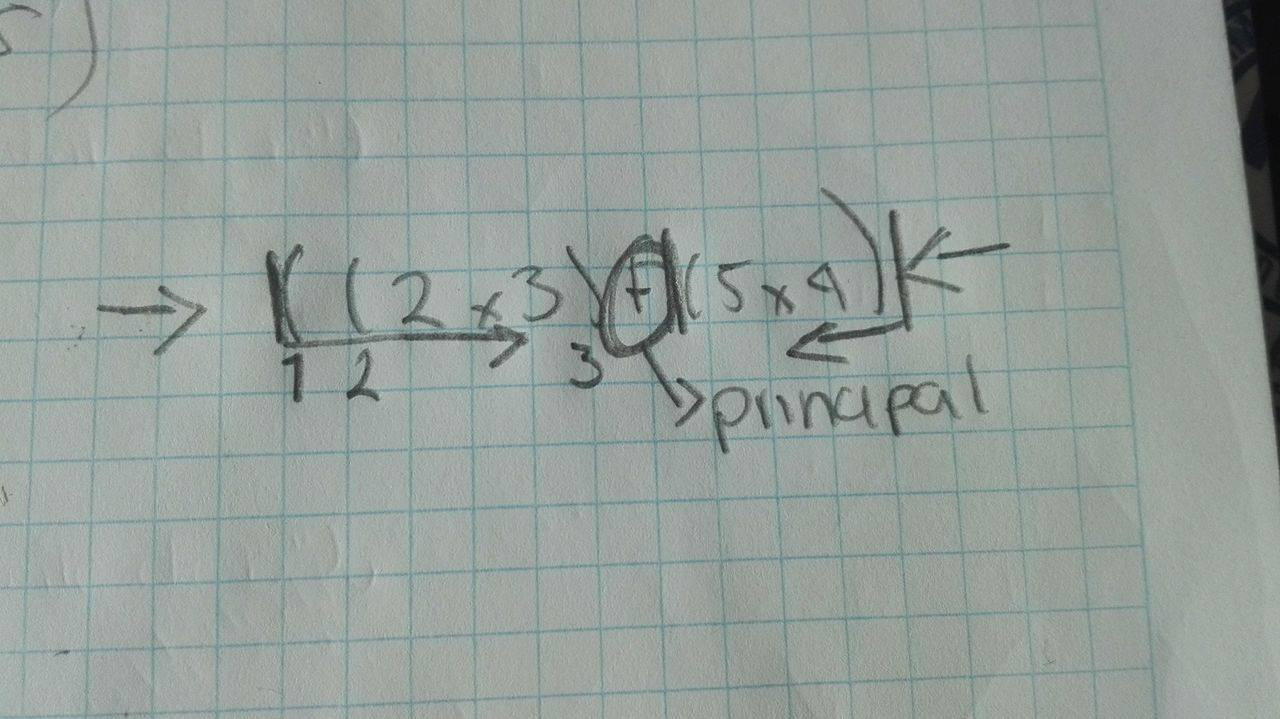 5)
→ ( ( 2 x 3 ) + ( 5 x 4 ) ) ←
1 2 3
principal